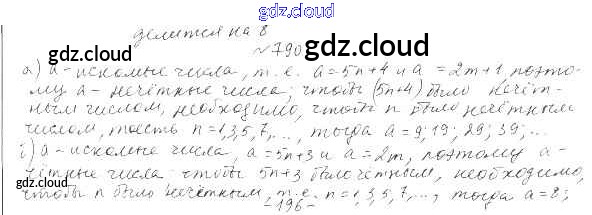 gdz.cloud
делится на 8
gdz.cloud
gdz.cloud
№790
а) a - искомые числа, т.е. a=5n+4 и a=2m+1, поэто-
му a - нечётные числа; чтобы (5n+4) было нечёт-
ным числом, необходимо, чтобы n было нечётным
числом, то есть n=1,3,5,7,..., тогда a=9; 19; 29; 39;...
gdz.cloud
gdz.cloud
б) a - искомые числа, a=5n+3 и a=2m, поэтому a -
чётные числа: чтобы 5n+3 было чётным, необходимо,
gdz.cloud
чтобы n было нечётным, т.е. n=1,3,5,7,..., тогда a=8;
-196-
gdz.cloud